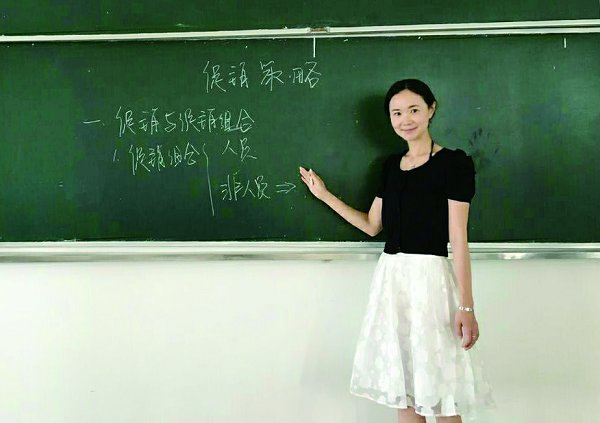 促销策略
一. 促销与促销组合
1. 促销组合 { 人员
非人员 ⇒